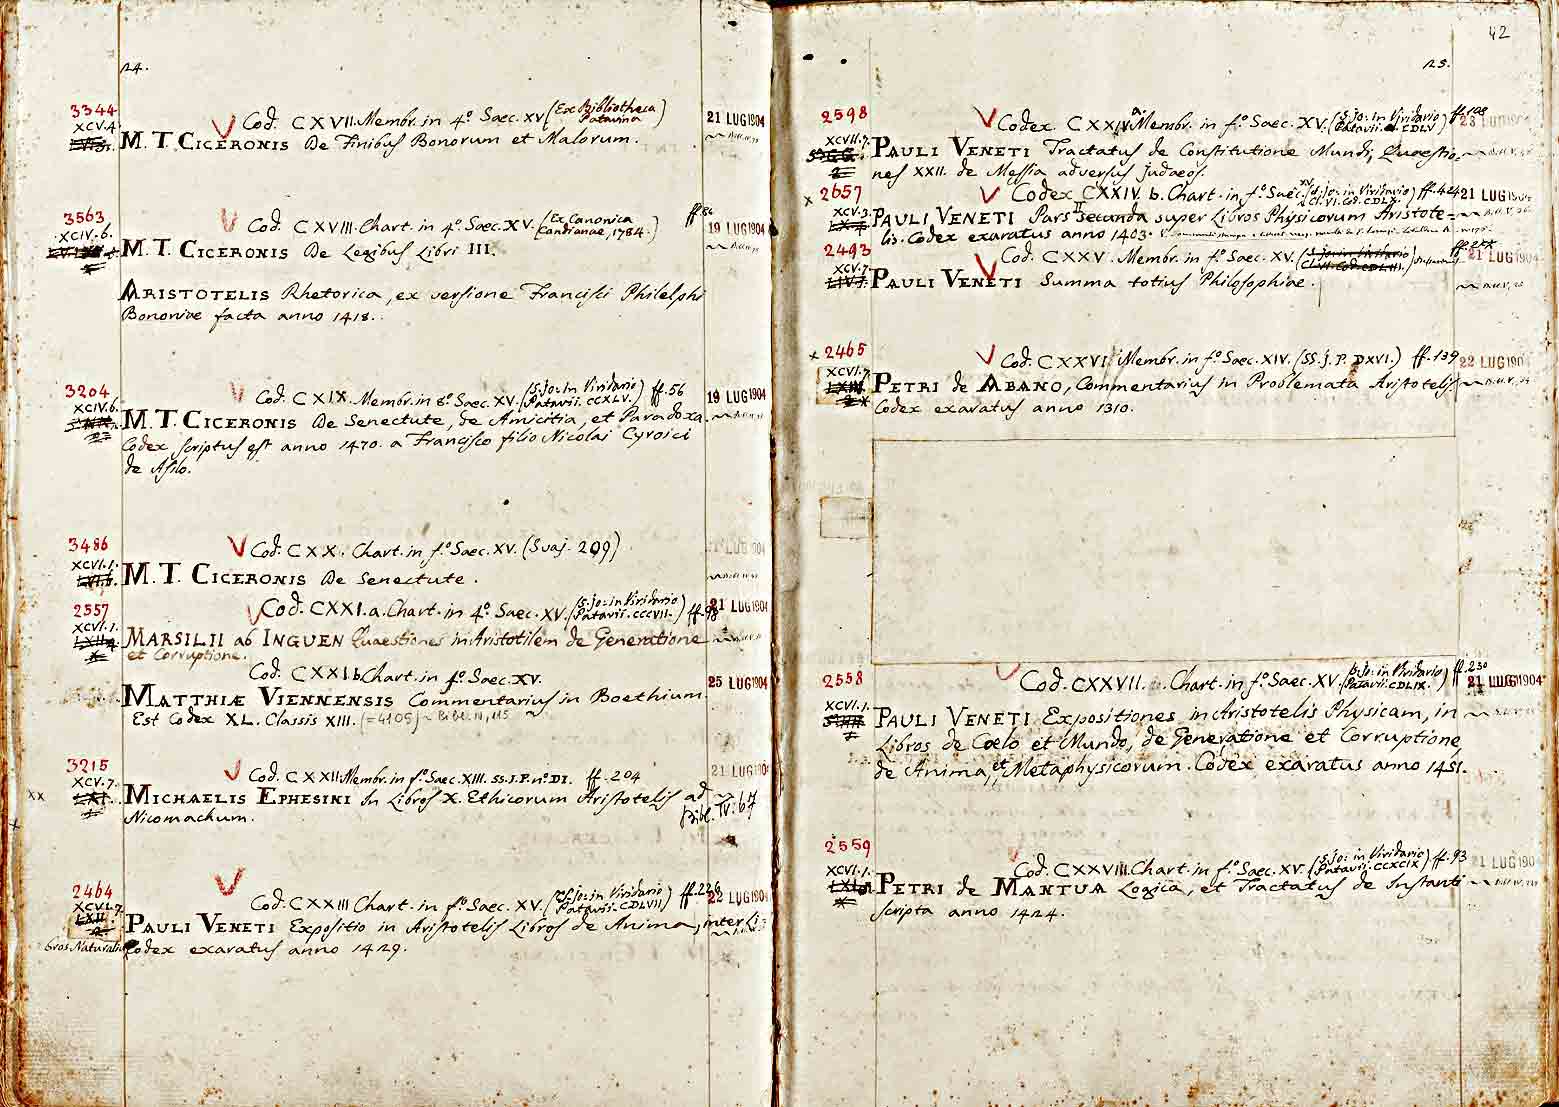 24.
3344
Cod. CXVII. Membr. in 4º. Saec. XV. (Ex Bibliotheca Patavina)
21 LUG 1904
XCV.4.
M. T. CICERONIS De Finibus Bonorum et Malorum.
3563
Cod. CXVIII. Chart. in 4º. Saec. XV. (Ex Canonica Candianae, 1784.)
19 LUG 1904
XCIV.6.
M. T. CICERONIS De Legibus Libri III.
ARISTOTELIS Rhetorica, ex versione Francisci Philelphi
Bononiae facta anno 1418.
3204
Cod. CXIX. Membr. in 8º. Saec. XV. (S. Jo: in Viridario Patavii. CCXLV.) ff. 56
19 LUG 1904
XCIV.6.
M. T. CICERONIS De Senectute, de Amicitia, et Paradoxa.
Codex scriptus est anno 1470. a Francisco filio Nicolai Cyroici
de Asilo.
3486
Cod. CXX. Chart. in fº. Saec. XV. (Suaj. 209)
XCVI.1.
M. T. CICERONIS De Senectute.
2557
Cod. CXXI. a. Chart. in 4º. Saec. XV. (S. Jo: in Viridario Patavii. CCCVII.) ff. 98
21 LUG 1904
XCVI.1.
MARSILII ab INGUEN Quaestiones in Aristotilem de Generatione
et Corruptione.
Cod. CXXI b Chart. in fº. Saec. XV.
25 LUG 1904
MATTHIÆ VIENNENSIS Commentarius in Boethium.
Est Codex XL. Classis XIII. (=4105)
3215
Cod. CXXII. Membr. in fº. Saec. XIII. SS. J. P. nº. DI. ff. 204
21 LUG 1904
XCV.7.
xx
MICHAELIS EPHESINI In Libros X. Ethicorum Aristotelis ad
Nicomachum.
Bibl. IV: 67
2464
Cod. CXXIII Chart. in fº. Saec. XV. (S. Jo: in Viridario Patavii. CDLVII)
22 LUG 1904
XCVI.7
LXII
PAULI VENETI Expositio in Aristotelis Libros de Anima, inter Li
bros Naturalium
Codex exaratus anno 1429.
42
25.
2598
Codex. CXXIV a. Membr. in fº. Saec. XV. (S. Jo: in Viridario Patavii. CDLV) ff. 108
XCVII.7.
PAULI VENETI Tractatus de Constitutione Mundi; Quaestio-
nes XXII. de Messia adversus Judaeos.
x 2657
Codex CXXIV. b. Chart. in fº. Saec. XV. (S. Jo: in Viridario Cl. VI. Cod. CDLX.) ff. 424
21 LUG 1904
XCV.3.
PAULI VENETI Pars II secunda super Libros Physicorum Aristote=
lis. Codex exaratus anno 1403.
2493
Cod. CXXV. Membr. in fº. Saec. XV.
21 LUG 1904
XCV.7.
PAULI VENETI Summa totius Philosophiae.
x 2465
Cod. CXXVI. Membr. in fº. Saec. XIV. (SS. J. P. DXVI.) ff. 139
22 LUG 190
XCVI.7.
PETRI de ABANO, Commentarius in Problemata Aristotelis
Codex exaratus anno 1310.
2558
Cod. CXXVII. Chart. in fº. Saec. XV. (S. Jo: in Viridario Patavii. CDLIX.) ff. 230
21 LUG 1904
XCVI.1.
PAULI VENETI Expositiones in Aristotelis Physicam, in
Libros de Coelo et Mundo, de Generatione et Corruptione,
de Anima, et Metaphysicorum. Codex exaratus anno 1451.
2559
Cod. CXXVIII. Chart. in fº. Saec. XV. (S. Jo: in Viridario Patavii. CCXCIX) ff. 93
21 LUG 190
XCVI.1.
PETRI de MANTUA Logica, et Tractatus de Instanti
scripta anno 1424.